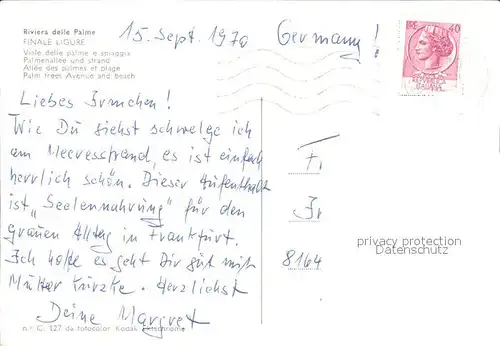 Riviera delle Palme
FINALE LIGURE
Viale delle palme e spiaggia
Palmenallee und strand
Allée des palmes et plage
Palm trees Avenue and beach
15. Sept. 1970 Germany!
40
ITALIANA
Liebes Irmchen!
Wie Du siehst schwelge ich
am Meeresstrand, es ist einfach
herrlich schön. Dieser Aufenthalt
ist "Seelennahrung" für den
grauen Alltag in Frankfurt.
Ich hoffe es geht Dir gut mit
Mutter Herzlichst
Deine Margret
Fr
Ir
8164
privacy protection
Datenschutz
n. r. C. 127 da fotocolor Kodak Ektachrome